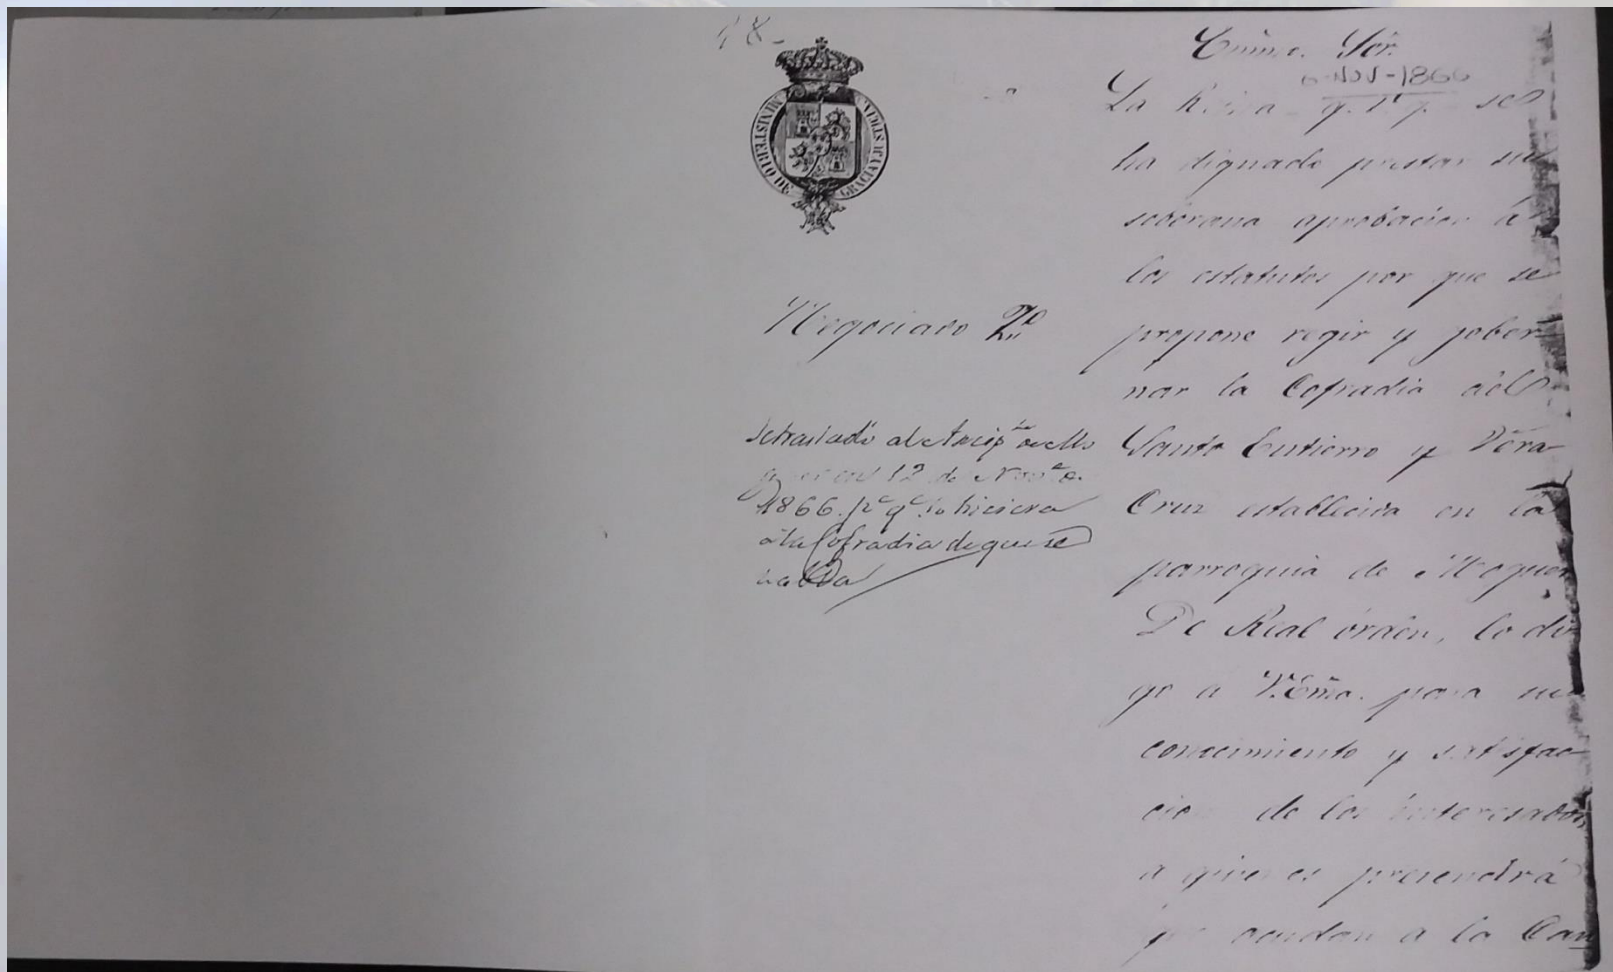 18-
MINISTERIO DE GRACIA Y JUSTICIA
Negociado 2º
Se trasladó al Arcip.te de Mo
guer en 12 de Nov.e de
1866. pª qe lo hiciera
á la Cofradia de que se
habla
Emmo. Sõr.
6-NOV-1866
La Reina q. D. g. se
ha dignado prestar su
soberana aprobacion á
los estatutos por que se
propone regir y gober
nar la Cofradia del
Santo Entierro y Vera
Cruz establecida en la
parroquia de Moguer
De Real órden, lo di
go a V. Ema. para su
conocimiento y satisfac
cion de los interesados,
a quienes prevendrá
que acudan a la Can